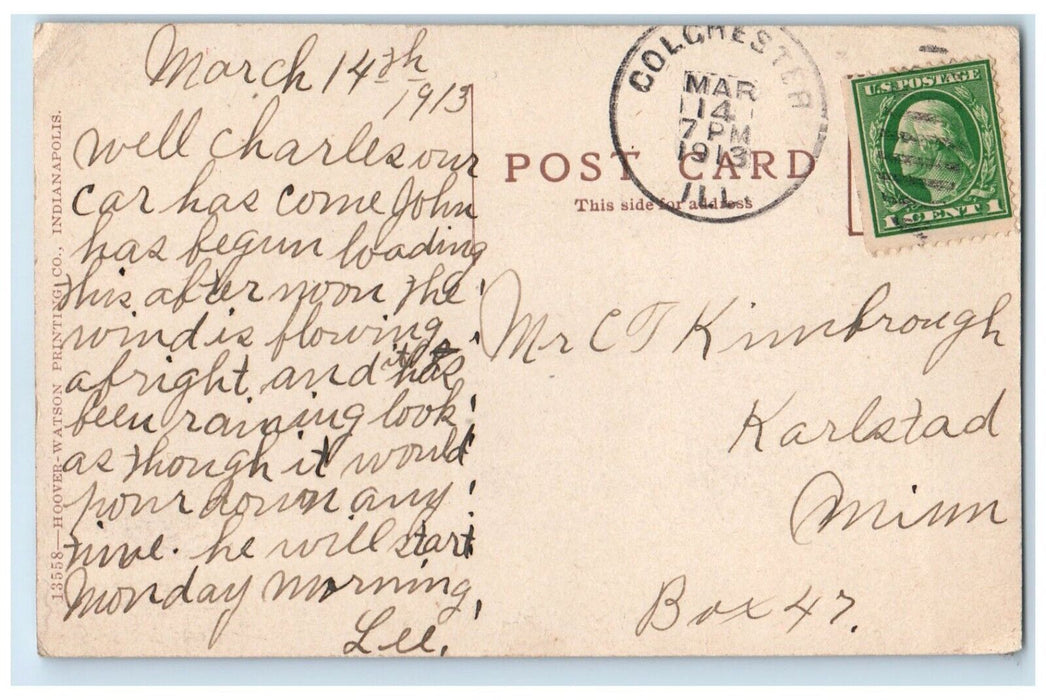 March 14th
1913
well Charles our
car has come John
has begun loading
this after noon the
wind is flowing
afright and it has
been raining look
as though it would
pour down any
time. he will start
Monday Morning,
Lee.
13558—HOOVER-WATSON PRINTING CO., INDIANAPOLIS.
POST CARD
This side for address
COLCHESTER
MAR
14
7 PM
1913
ILL.
U.S. POSTAGE
1 CENT 1
Mr C T Kimbrough
Karlstad
Minn
Box 47.